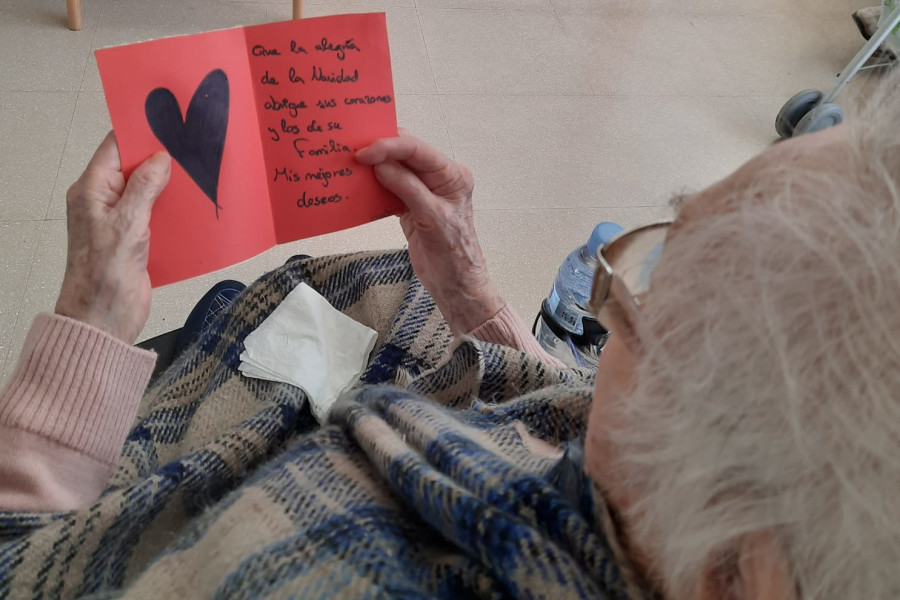 Que la alegría
de la Navidad
abrigue sus corazones
y los de su
Familia.
Mis mejores
deseos.